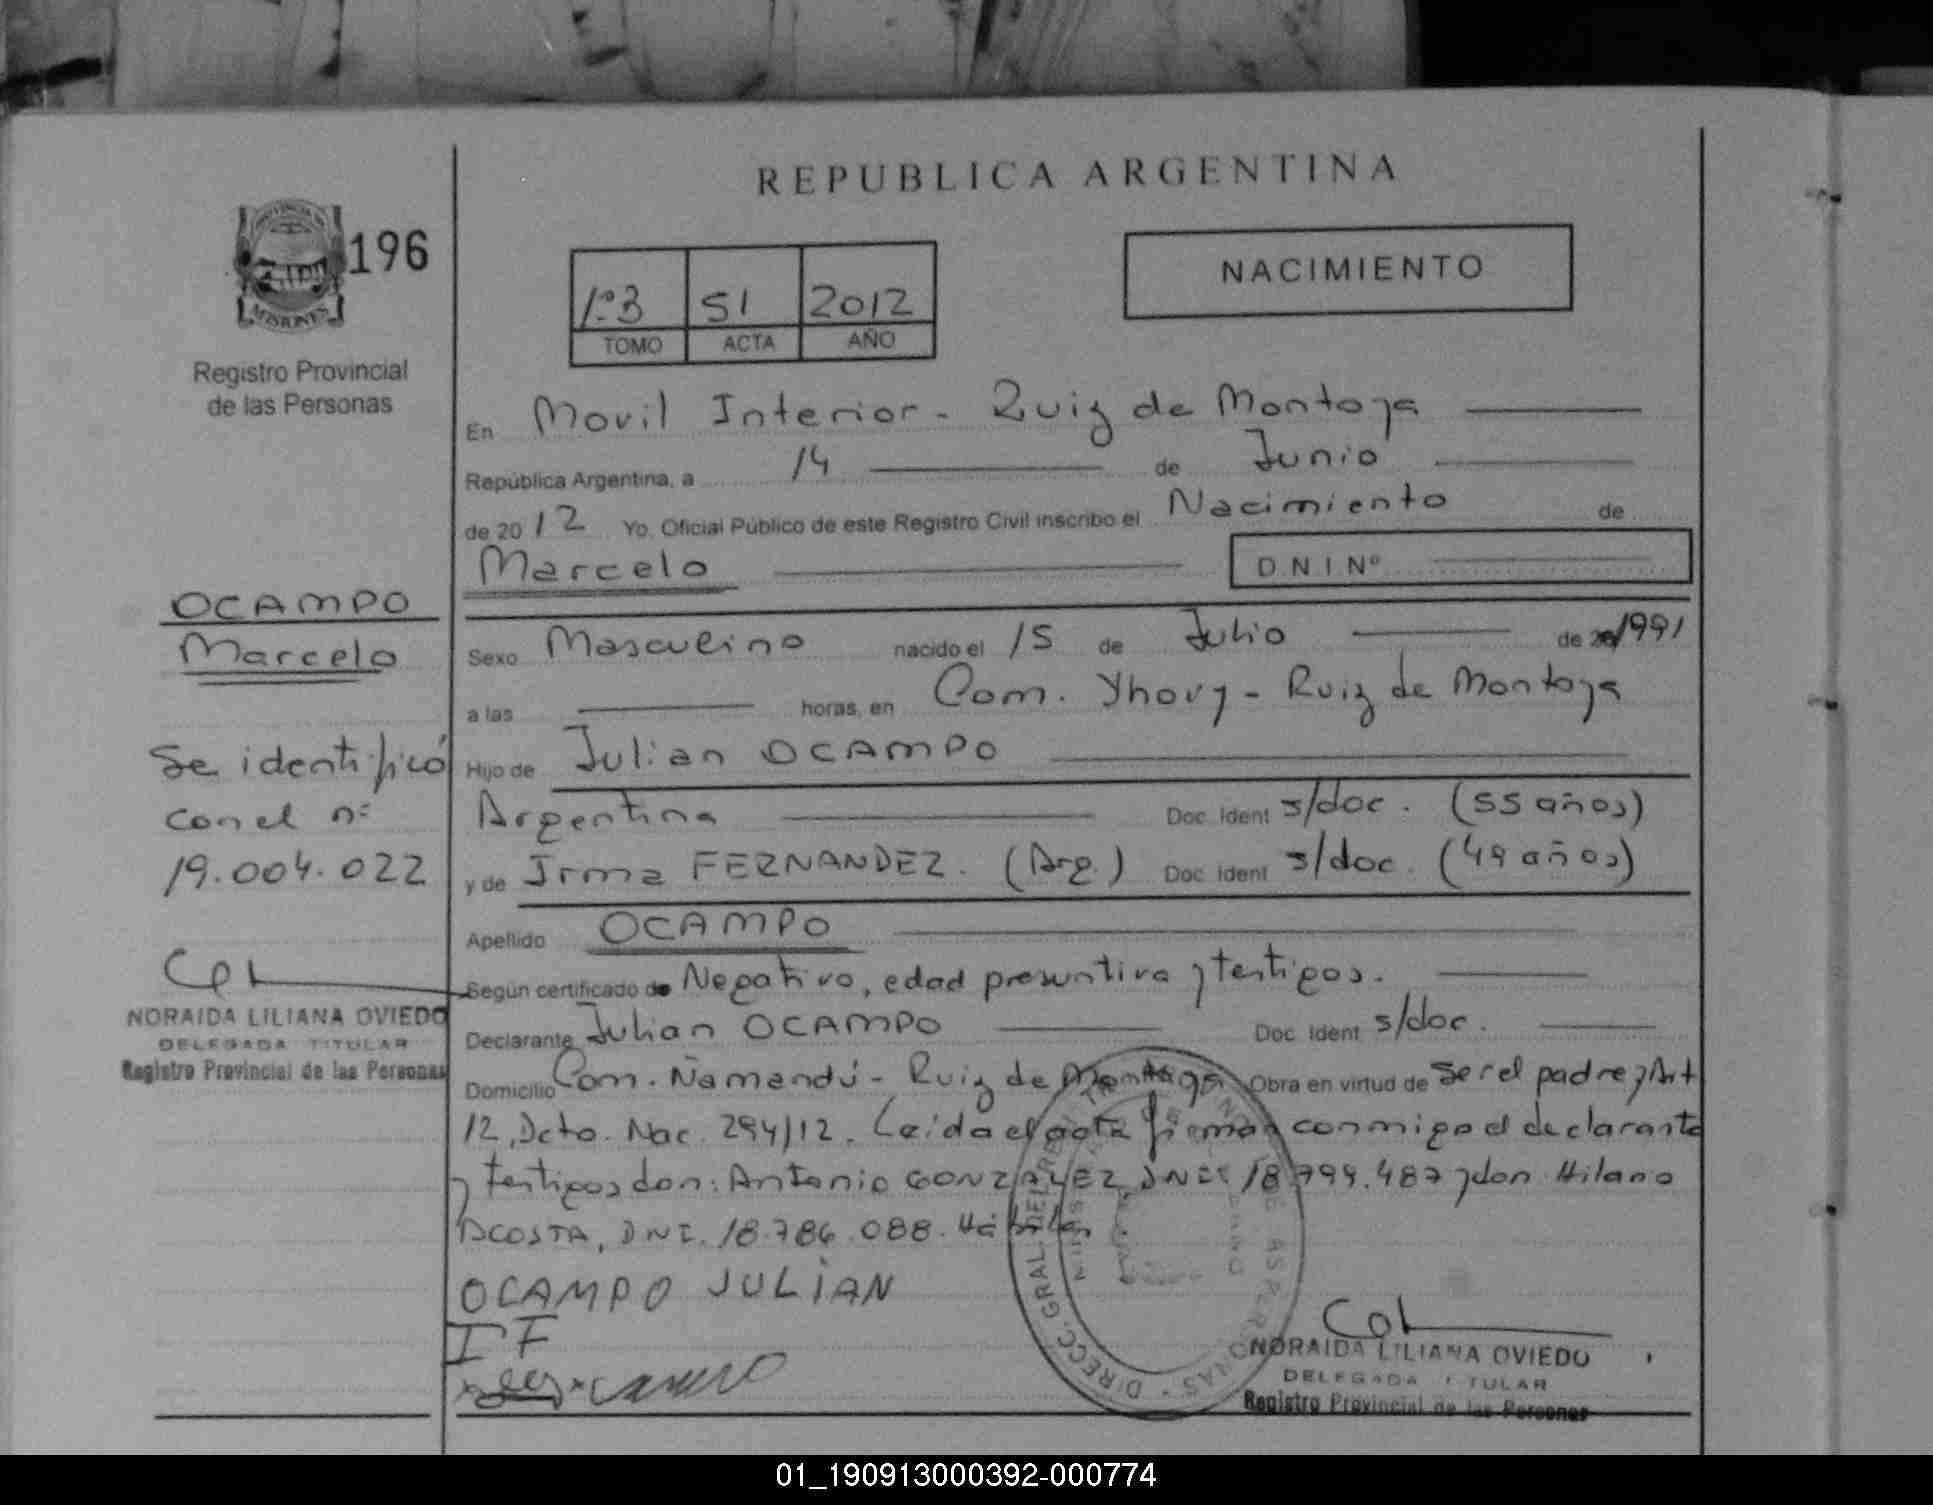 REPUBLICA ARGENTINA
196
MISIONES
Registro Provincial
de las Personas
1º3 51 2012
TOMO ACTA AÑO
NACIMIENTO
En Movil Interior - Ruiz de Montoya
República Argentina, a 14 de Junio
de 2012 Yo, Oficial Público de este Registro Civil inscribo el Nacimiento de
Marcelo D N I Nº
OCAMPO
Marcelo
Sexo Masculino nacido el 15 de Julio de 1991
a las horas, en Com. Yhovy - Ruiz de Montoya
Se identificó
con el nº
19.004.022
Hijo de Julian OCAMPO
Argentina Doc. Ident s/doc. (55 años)
y de Irma FERNANDEZ. (Arg.) Doc. Ident s/doc. (49 años)
Apellido OCAMPO
Según certificado de Negativo, edad presuntiva y testigos.
NORAIDA LILIANA OVIEDO
DELEGADA TITULAR
Registro Provincial de las Personas
Declarante Julian OCAMPO Doc. Ident s/doc.
Domicilio Com. Ñamandú - Ruiz de Montoya Obra en virtud de ser el padre y Art
12, Dcto. Nac. 294/12. Leida el acta firman conmigo el declarante
y testigos don: Antonio GONZALEZ DNI: 18.799.487 y don Hilario
ACOSTA, DNI. 18.786.088. Hábiles
OCAMPO JULIAN
I F
DIRECC. GRAL. DEL REG. PERSONAS
NORAIDA LILIANA OVIEDO
DELEGADA TITULAR
Registro Provincial de las Personas
01_190913000392-000774